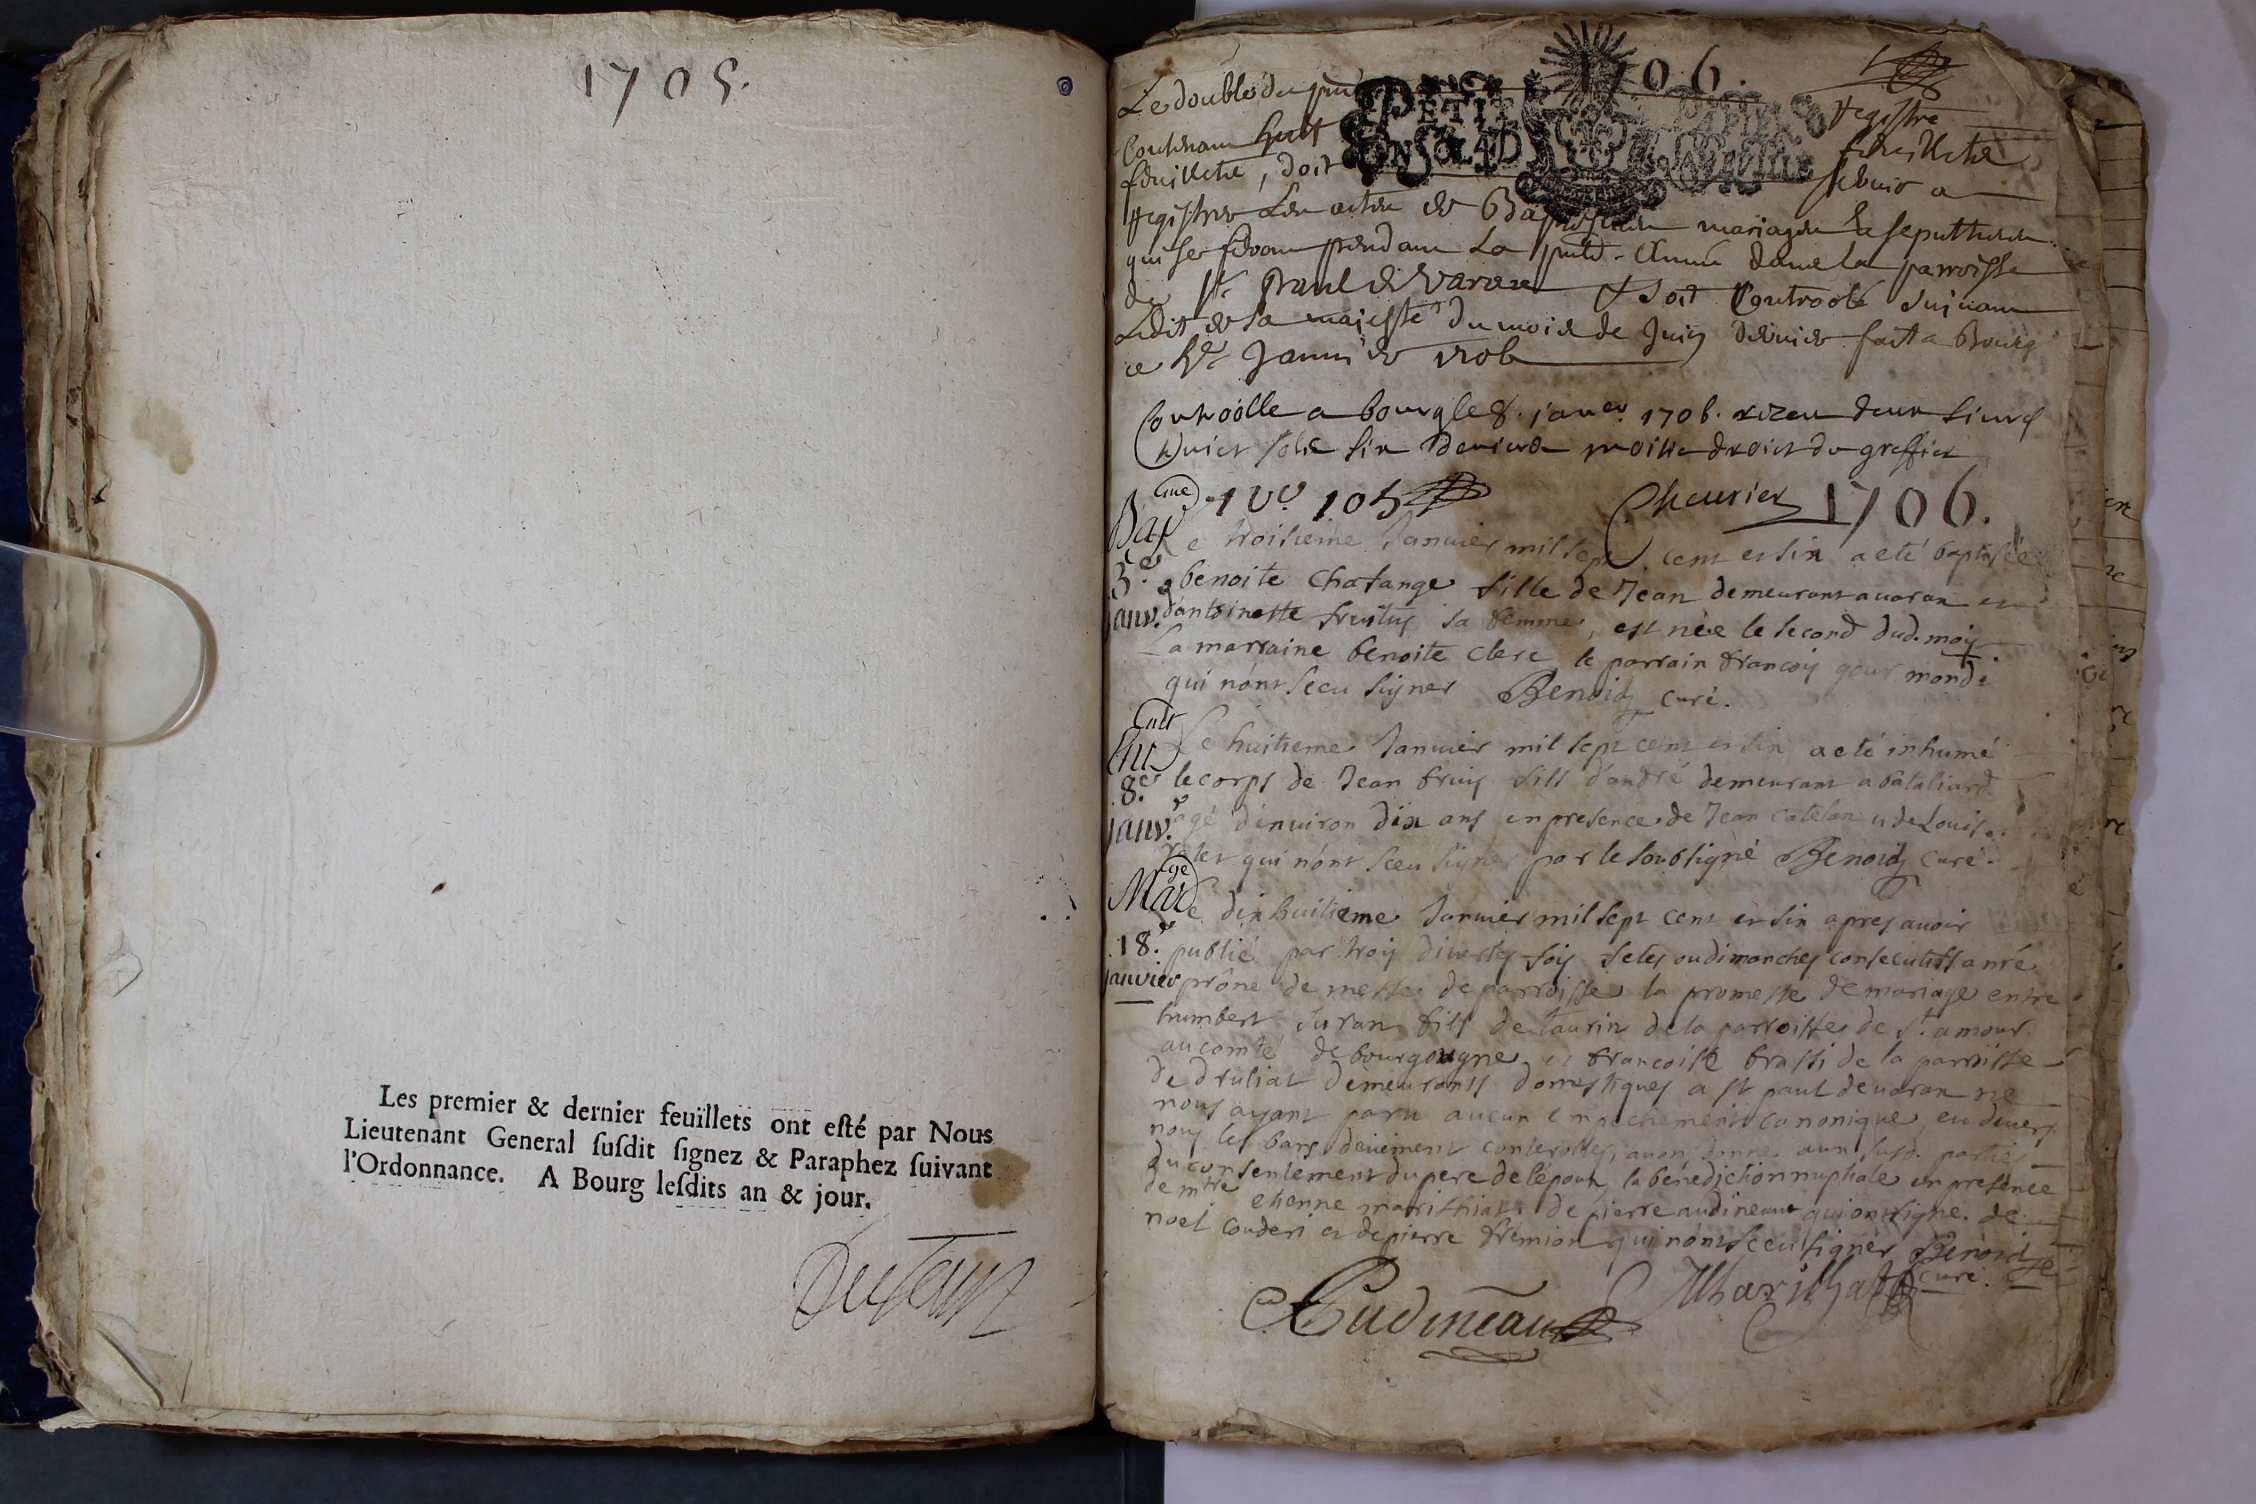 1705.
Les premier & dernier feüillets ont esté par Nous
Lieutenant General susdit signez & Paraphez suivant
l'Ordonnance. A Bourg lesdits an & jour.
1706.
Le double du registre
Contenant huit feuillets
feuillets, doit servir a
registrer Les actes de Baptesmes mariages & sepultures
qui se feront pendant La année dans la parroisse
de St Paul de Varax & soit Controolé suivant
Ledit de sa majesté du mois de Juin dernier fait a Bourg
ce Janvier 1706
PETIT PAPIER
CONSOLÃD
Controolle a bourg le 8. janer 1706. receu deux livres
huict sols six deniers moitie droict du greffier
Cheurier 1706.
Bapme
3.e
janv.
Le troisieme Januier mil sept cent et six a eté baptisée
benoite chatange fille de Jean demeurant a varax et
d'antoinette fruitus sa femme, est née le second dud. moy
La marraine benoite clerc le parrain francois gourmond
qui n'ont sceu signer Benoid curé.
8.e
janv.
Le huitieme Januier mil sept cent et six a eté inhumé
le corps de Jean fruis fils d'andré demeurant a bataliard
agé d'enuiron dix ans en presence de Jean catelan et de Louis
qui n'ont sceu signer par le soubsigné Benoid curé.
Marge
18.e
janvier
Le dix huitieme Januier mil sept cent et six apres auoir
publié par trois diverses fois festes ou dimanches consecutifs a nré
prône de messe de parroisse la promesse de mariage entre
humbert Juran fils de taurin de la parroisse de St amour
au comté de bourgougne et francoise brassi de la parroisse
de druliat demeurants domestiques a st paul de uaran ne
nous ayant paru aucun empechement canonique, eu deuers
nous les bans deuement controlles, auons donné aux susd. parties
du consentement du pere de l'epoux, la bénediction nuptiale en presence
de mtre etienne marilhiat de pierre audineau qui ont signé. de
noel couderi et de pierre fremion qui n'ont sceu signer Benoid
curé.
Audineau Marilhat